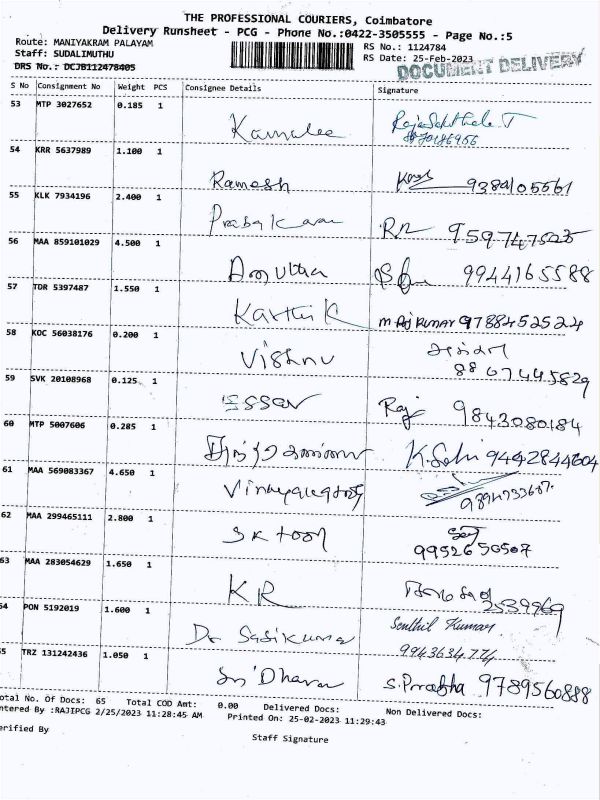 THE PROFESSIONAL COURIERS, Coimbatore
Delivery Runsheet - PCG - Phone No.:0422-3505555 - Page No.:5
Route: MANIYAKRAM PALAYAM
RS No.: 1124784
Staff: SUDALIMUTHU
RS Date: 25-Feb-2023
DRS No.: DCJB112478405
DOCUMENT DELIVERY
S No Consignment No Weight PCS Consignee Details Signature
53 MTP 3027652 0.185 1 Kamalee
54 KRR 5637989 1.100 1 Ramesh 9389105561
55 KLK 7934196 2.400 1 Prabakaran RR 9597147525
56 MAA 859101029 4.500 1 9944165588
57 TDR 5397487 1.550 1 Karthik M Raj Kumar 9788452524
58 KOC 56038176 0.200 1 Vishnu
8867445829
59 SVK 20108968 0.125 1 Raj 9843080184
60 MTP 5007606 0.285 1 9442844604
61 MAA 569083367 4.650 1
62 MAA 299465111 2.800 1
9952650507
63 MAA 283054629 1.650 1 KR
2539969
64 PON 5192019 1.600 1 Dr Sasikumar Senthil Kumar
9943634774
65 TRZ 131242436 1.050 1 Sri Dharan S. Prabha 9789560888
Total No. Of Docs: 65 Total COD Amt: 0.00 Delivered Docs: Non Delivered Docs:
Entered By :RAJIPCG 2/25/2023 11:28:45 AM Printed On: 25-02-2023 11:29:43
Verified By
Staff Signature